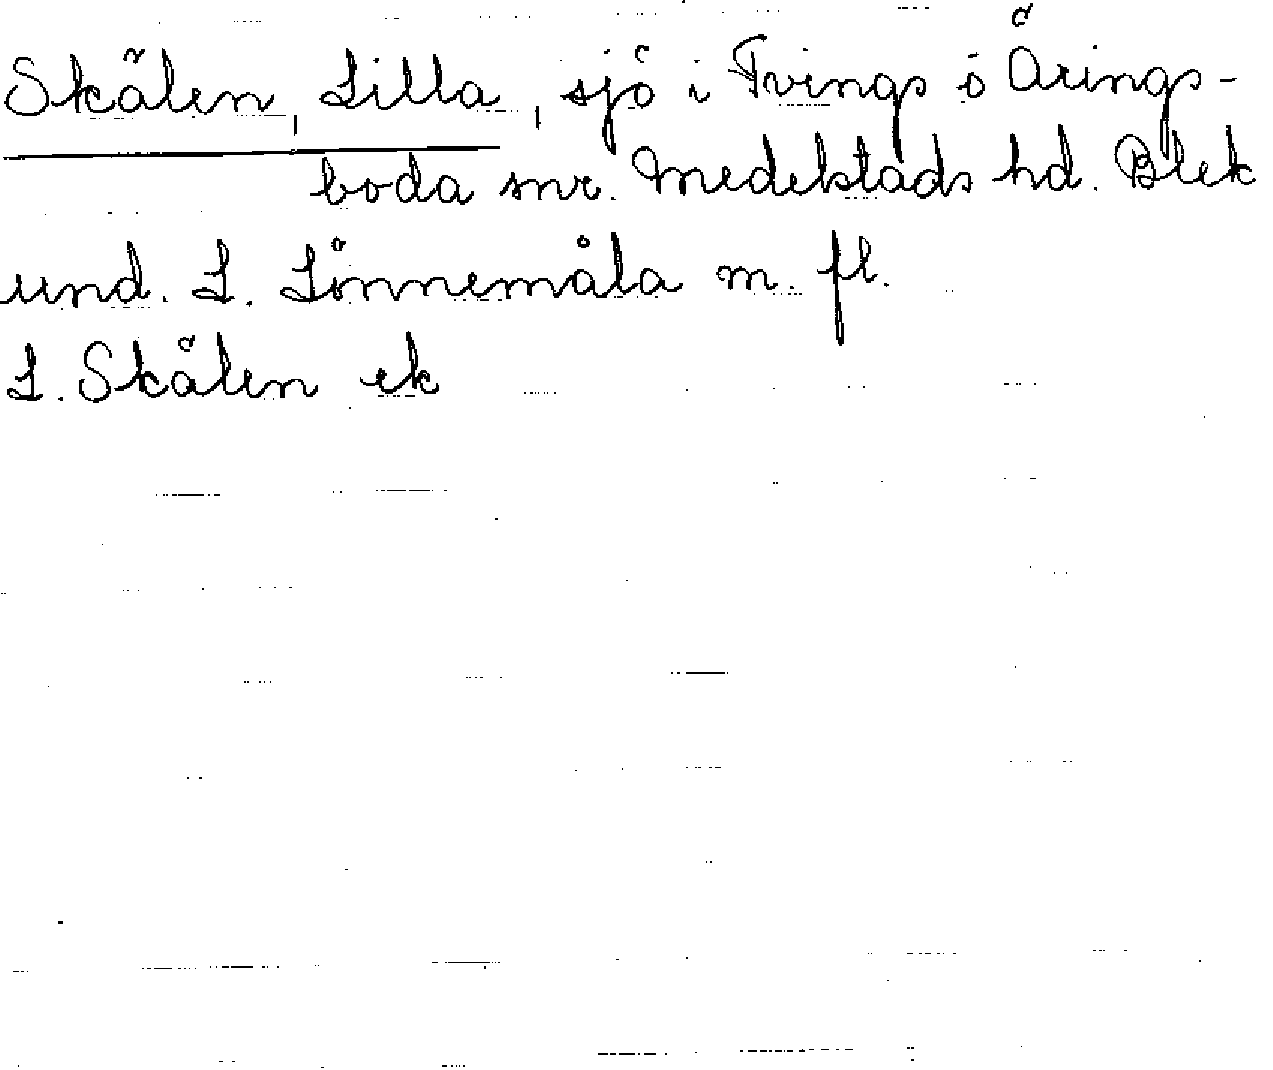 Skålen, Lilla, sjö i Tvings o Årings-
boda snr. Medelstads hd. Blek
und. L. Lönnemåla m. fl.
L. Skålen ek